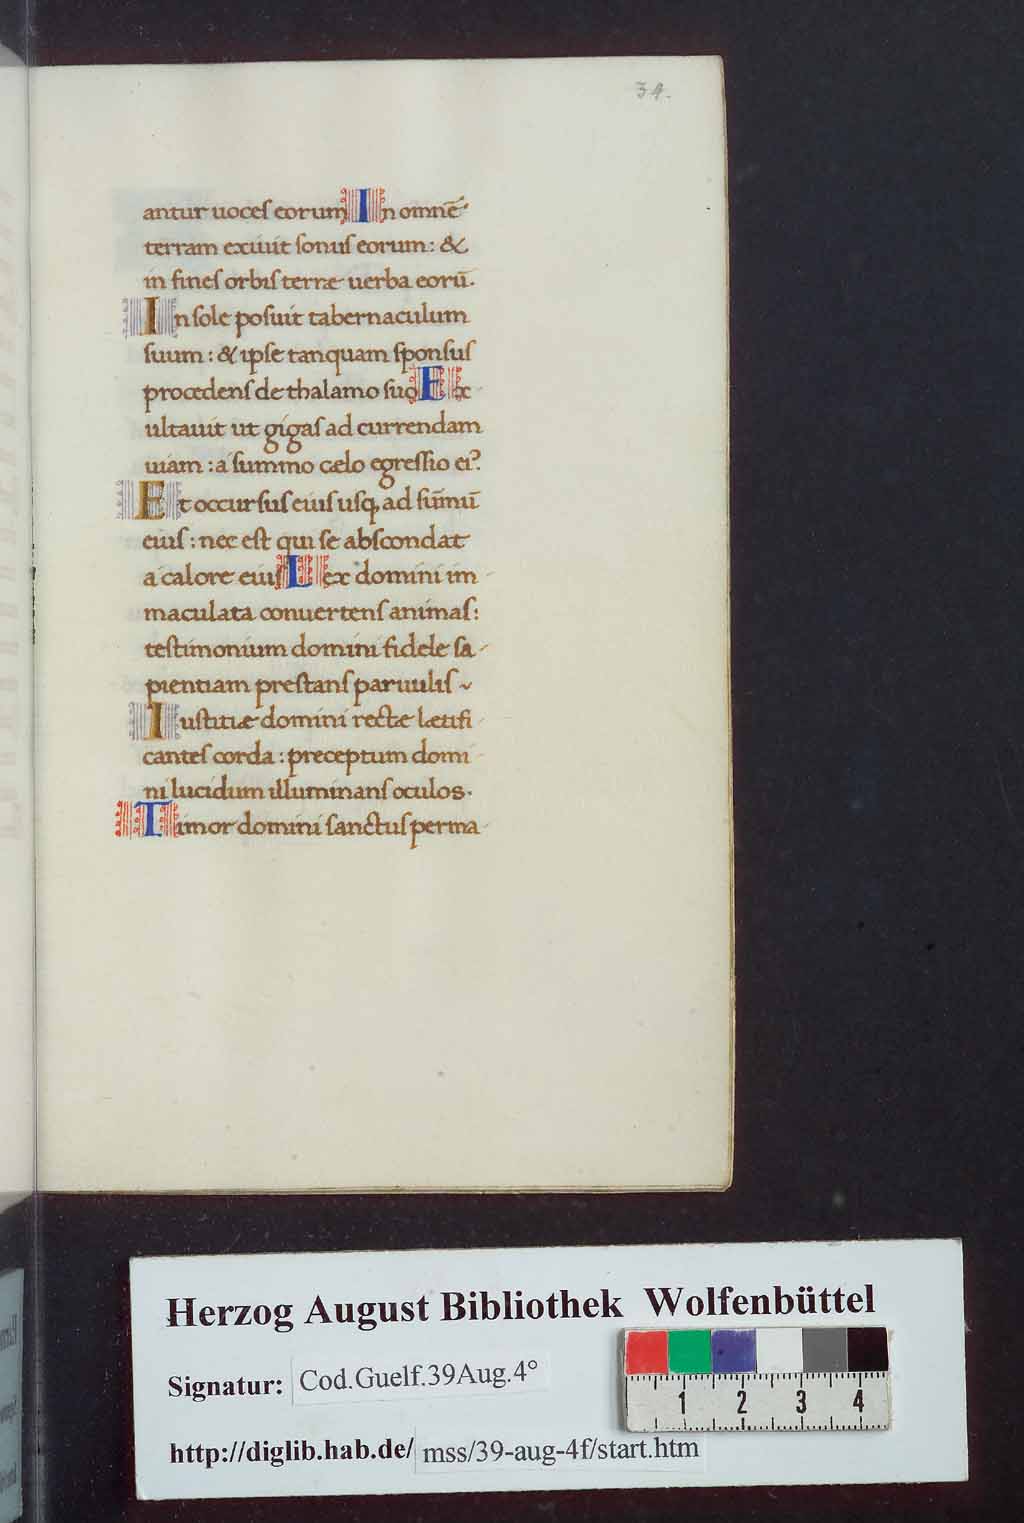 34.
antur uoces eorum In omnē
terram exiuit sonus eorum: &
in fines orbis terræ uerba eorū.
In sole posuit tabernaculum
suum: & ipse tanquam sponsus
procedens de thalamo suo Ex
ultauit ut gigas ad currendam
uiam: a summo cælo egressio ei⁹.
Et occursus eius usq, ad sūmū
eius: nec est qui se abscondat
a calore eius Lex domini im
maculata conuertens animas:
testimonium domini fidele sa
pientiam prestans paruulis
Iustitiæ domini rectæ lætifi
cantes corda: preceptum domi
ni lucidum illuminans oculos.
Timor domini sanctus perma
Herzog August Bibliothek Wolfenbüttel
Signatur: Cod.Guelf.39Aug.4°
1 2 3 4
http://diglib.hab.de/ mss/39-aug-4f/start.htm